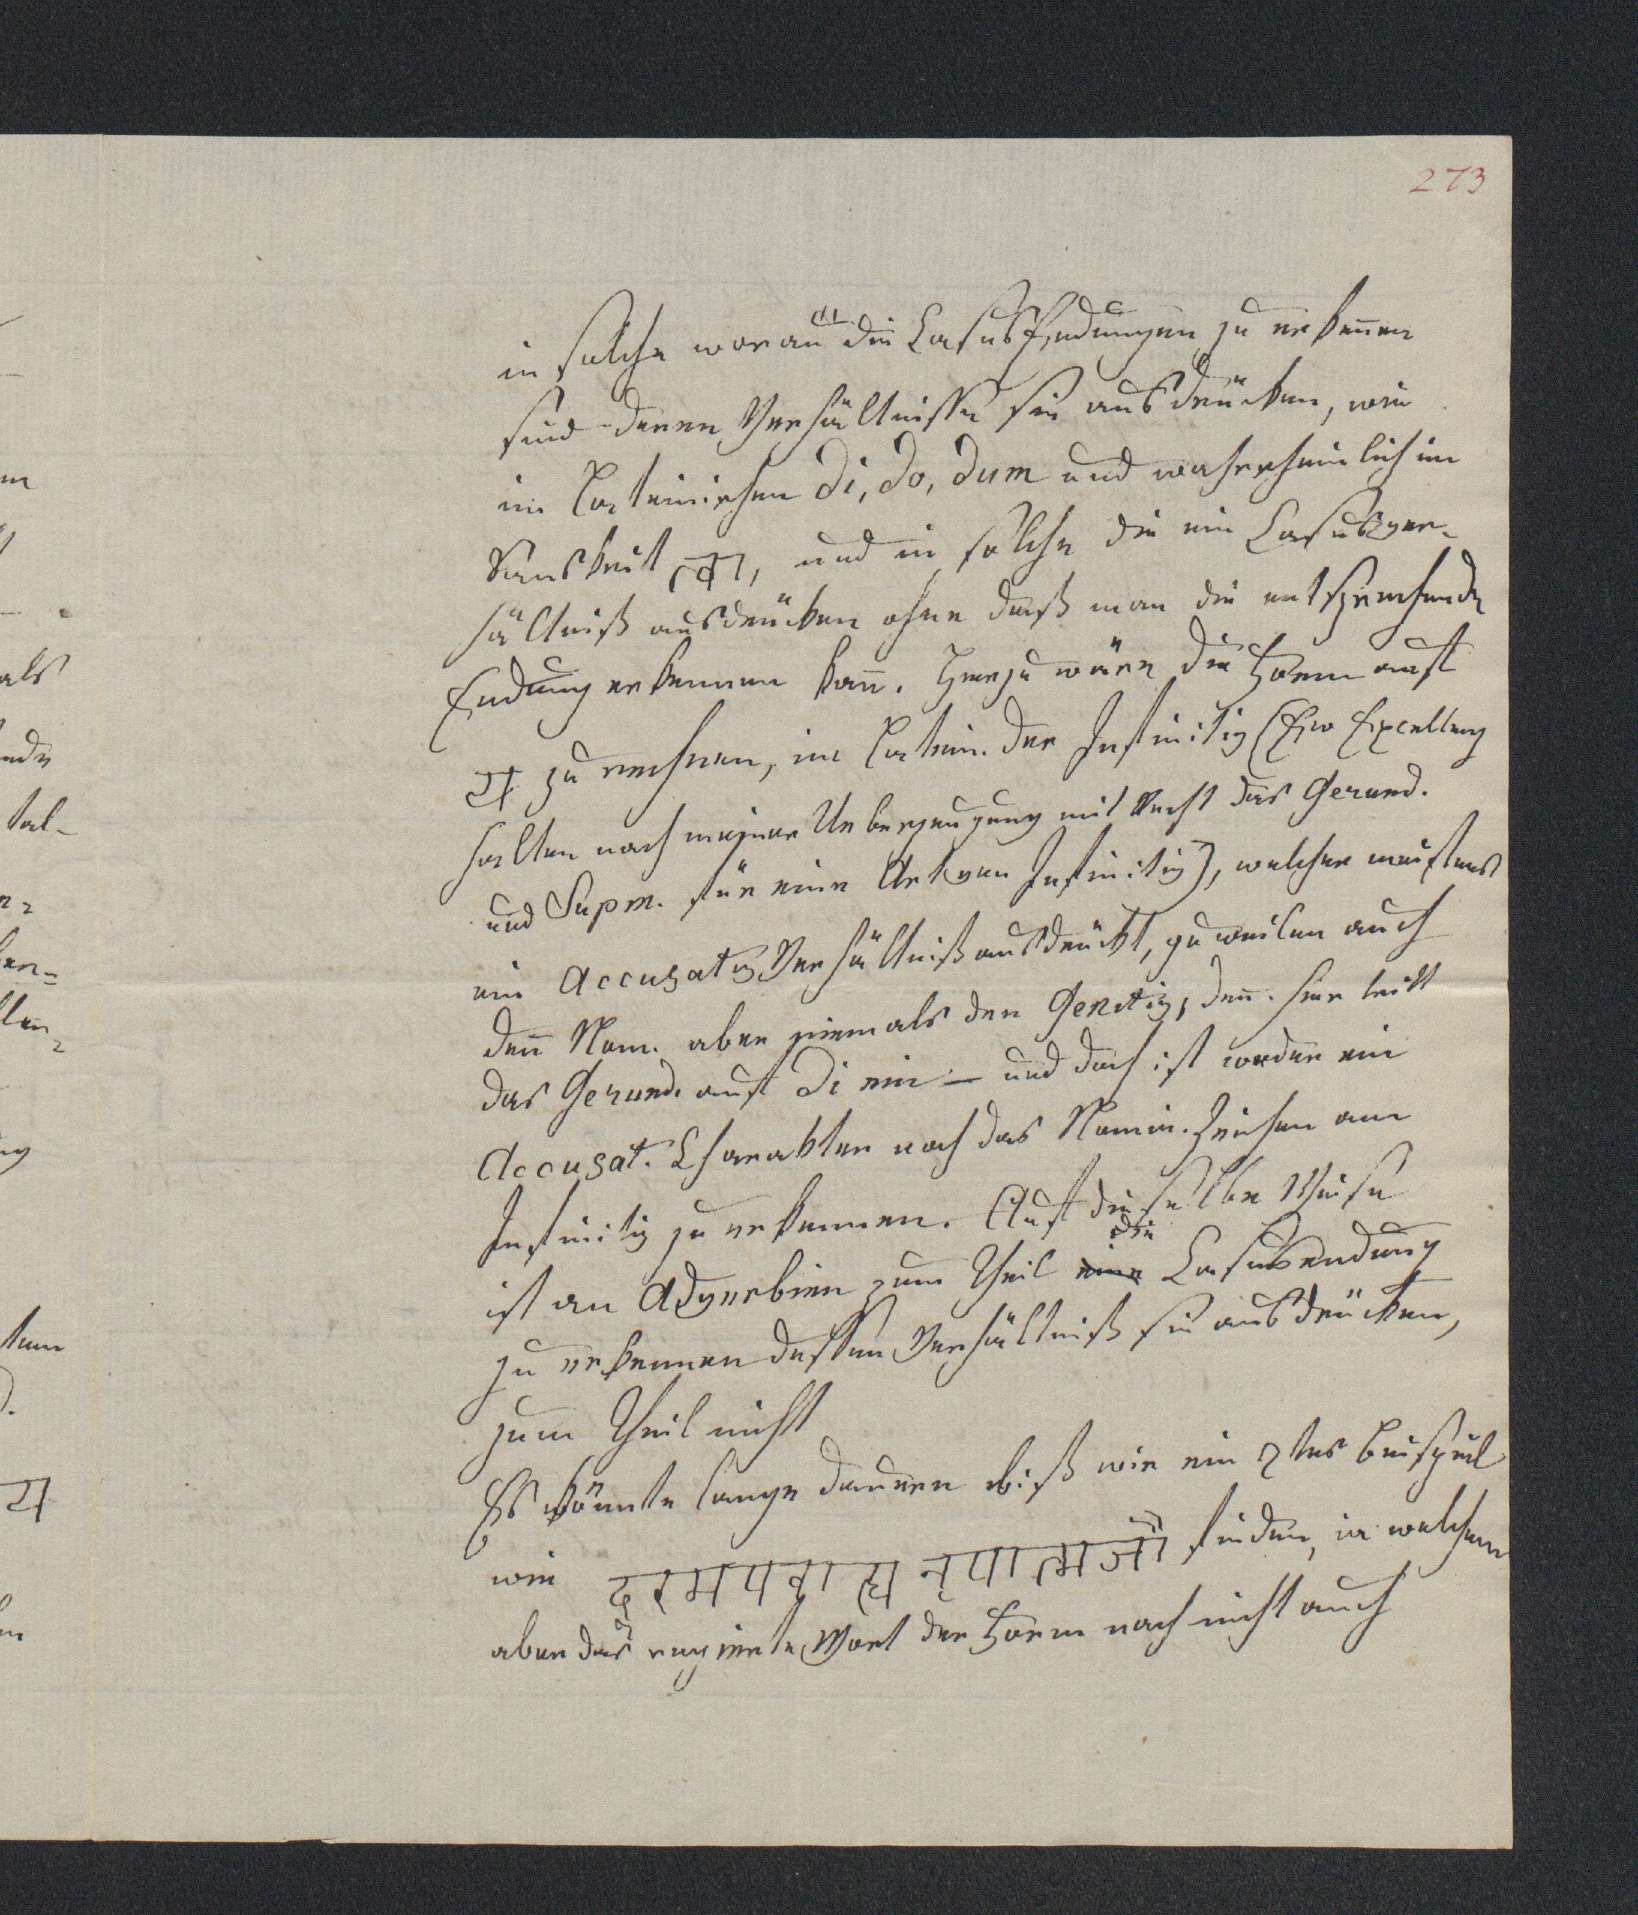 273
in solche woran die CasusEndungen zu erkeñen
sind deren Verhältnisse sie ausdrücken, wie
im Lateinischen di, do, dum und wahrscheinlich im
Sanskrit त्वा, und in solche die ein Casusver-
hältniß ausdrücken ohne daß man die entsprechende
Endung erkennen kañ. Hierzu wäre die Form auf
य zu rechnen, im Latein. der Infinitiv (Ew Excellenz
halten nach meiner Ueberzeugung mit Recht das Gerund.
und Supin. für eine Art von Infinitiv), welcher meistens
ein Accusativ Verhältniß ausdrückt, zuweilen auch
den Nom. aber niemals den Genitiv, deñ hier tritt
das Gerund. auf di ein – und doch ist weder ein
Accusat. Charakter noch das Nomin. Zeichen am
Infinitiv zu erkennen. Auf dieselbe Weise
ist an Adverbien zum Theil eine die Casusendung
zu erkennen dessen Verhältniß sie ausdrücken,
zum Theil nicht
Es könnte lange dauern biß wir ein 2tes Beispiel
wie नृपात्मजौ finden, in welchem
aber das regierte Wort der Form nach nicht auch
als
tal-
य